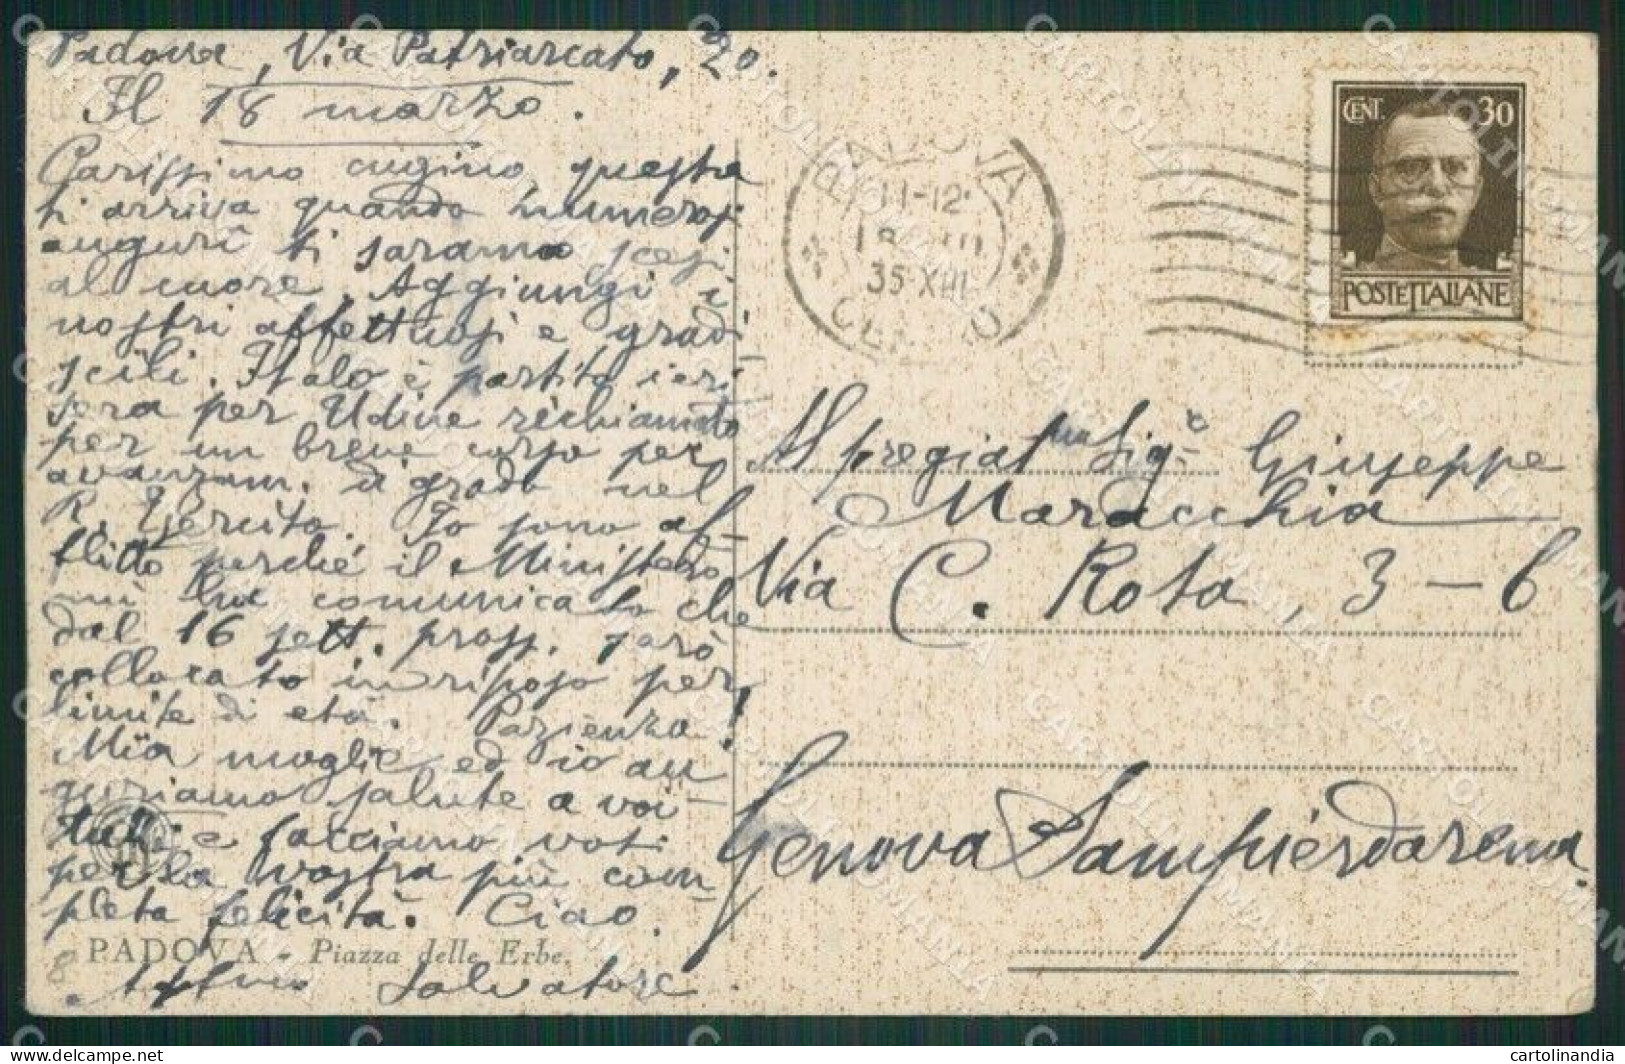 Padova, Via Patriarcato, 20.
Il 18 marzo.
Carissimo cugino, questa
ti arriva quando numerosi
auguri ti saranno scesi
al cuore. Aggiungi i
nostri affettuosi e gradi-
scili. Italo è partito ieri
sera per Udine richiamato
per un breve corso per
avanzam. di grado nel
R. Esercito. Io sono af-
flitto perché il Ministero
mi ha comunicato che
dal 16 sett. pross. sarò
collocato in riposo per
limite di età. Pazienza!
Mia moglie ed io au-
guriamo salute a voi
tutti e facciamo voti
per la vostra più com-
pleta felicità. Ciao.
PADOVA - Piazza delle Erbe.
8
Salvatore
PADOVA
11-12
18 III
35-XIII
CENTRO
CENT. 30
POSTE ITALIANE
Al pregiat.mo Sig. Giuseppe
Maracchia
Via C. Rota, 3-6
Genova Sampierdarena.
CARTOLINOMANIA
cartolinandia